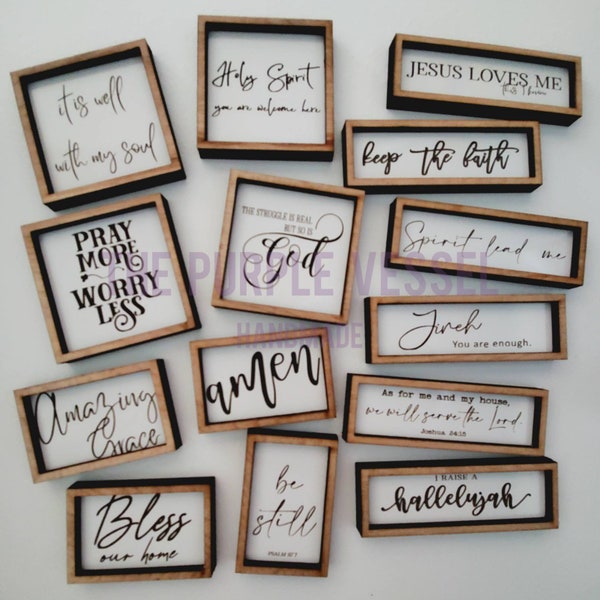 it is well
with my soul
Holy Spirit
you are welcome here
JESUS LOVES ME
this I know
keep the faith
PRAY
MORE
WORRY
LESS
THE STRUGGLE IS REAL
BUT SO IS
God
Spirit lead me
THE PURPLE VESSEL
HANDMADE
Jireh
You are enough.
Amazing
Grace
amen
As for me and my house,
we will serve the Lord.
Joshua 24:15
Bless
our home
be
still
I RAISE A
hallelujah